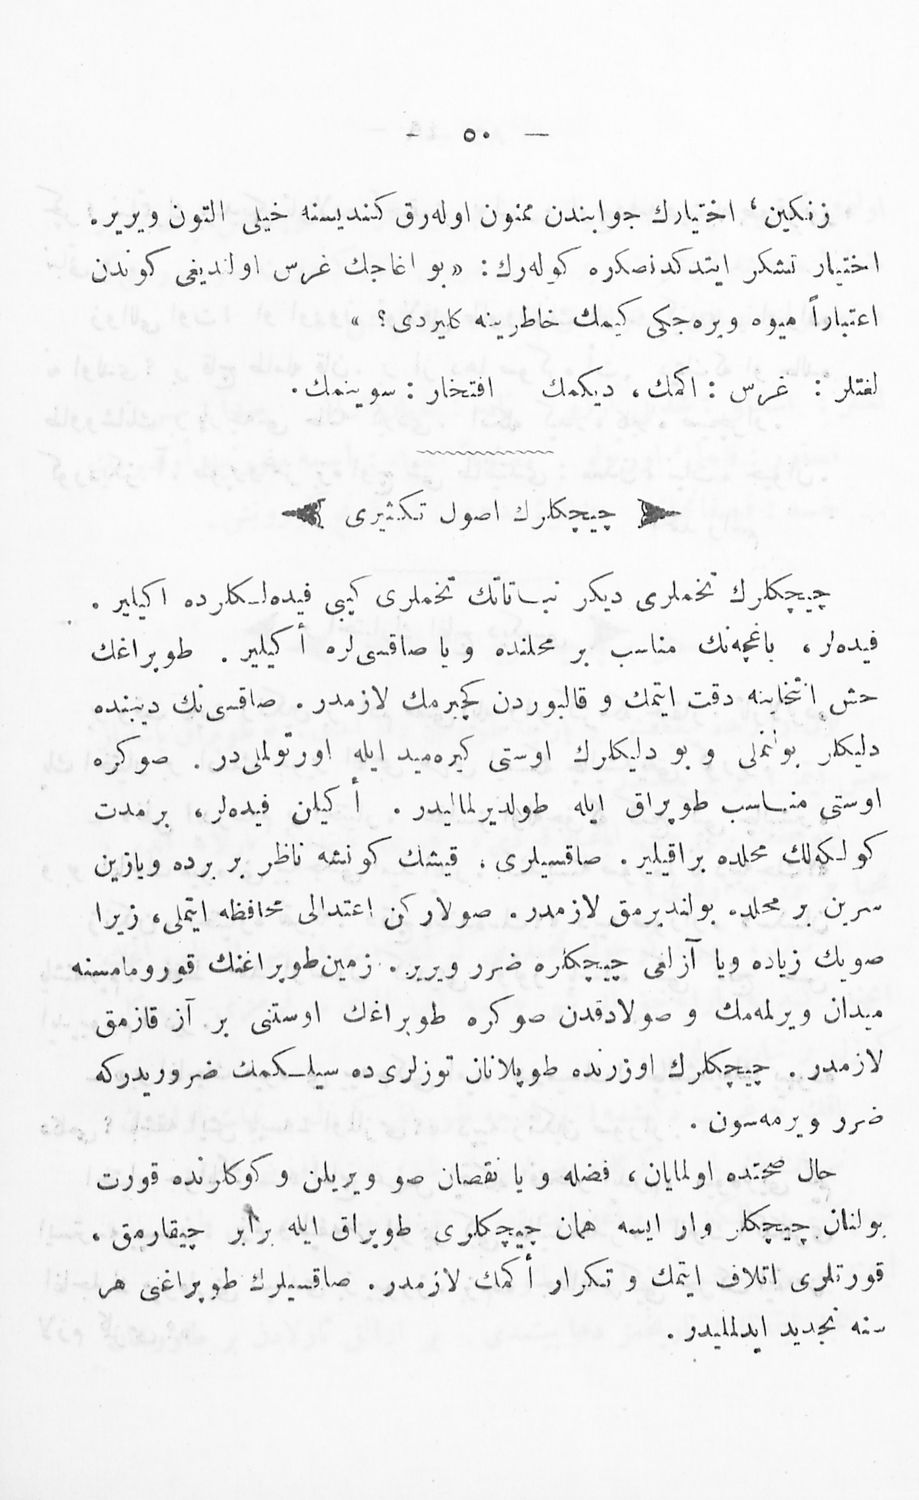 — ٥٠ —
زنكین، اختیارك جوابندن ممنون اوله‌رق كندیسنه خیلی التون ویریر.
اختیار تشكر ایتدكدنصكره كوله‌رك: «بو اغاجك غرس اولندیغی كوندن
اعتباراً میوه ویره‌جكی كیمك خاطرینه كلیردی؟ »
لغتلر : غرس : اكمك، دیكمك افتخار : سوینمك.
چیچكلرك اصول تكثیری
چیچكلرك تخملری دیكر نباتاتك تخملری كبی فیده‌لكلرده اكیلیر .
فیده‌لر، باغچه‌نك مناسب بر محلنده و یا صاقسی‌لره أكیلیر . طوپراغك
حسن انتخابنه دقت ایتمك و قالبوردن كچیرمك لازمدر. صاقسی‌نك دیبنده
دلیكلر بولنملی و بو دلیكلرك اوستی كیره‌مید ایله اورتولملی‌در . صوكره
اوستی مناسب طوپراق ایله طولدیرلمالیدر . أكیلن فیده‌لر، بر مدت
كولكه‌لك محلده براقیلیر. صاقسیلری، قیشك كونشه ناظر بر یرده ویازین
سرین بر محلده بولندیرمق لازمدر. صولاركن اعتدالی محافظه ایتملی، زیرا
صویك زیاده ویا آزلغی چیچكلره ضرر ویریر. زمین‌طوپراغنك قورومامسنه
میدان ویرلمه‌مك و صولادقدن صوكره طوپراغك اوستنی بر آز قازمق
لازمدر . چیچكلرك اوزرنده طوپلانان توزلری‌ده سیلكمك ضروریدركه
ضرر ویرمه‌سون .
حال صحتده اولمایان، فضله و یا نقصان صو ویریلن و كوكلرنده قورت
بولنان چیچكلر وار ایسه همان چیچكلری طوپراق ایله برابر چیقارمق،
قورتلری اتلاف ایتمك و تكرار أكمك لازمدر. صاقسیلرك طوپراغنی هر
سنه تجدید ایدلملیدر .